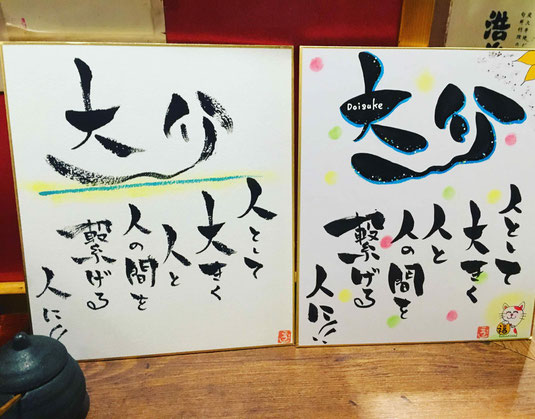 大介
人として
大きく
人と
人の間を
繋げる
人に!!
大介
Daisuke
人として
大きく
人と
人の間を
繋げる
人に!!
福
浩